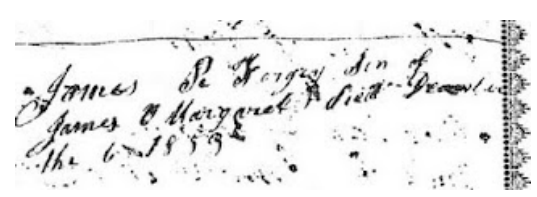 James R Forgey Son of
James & Margaret F Died December
the 6 1853